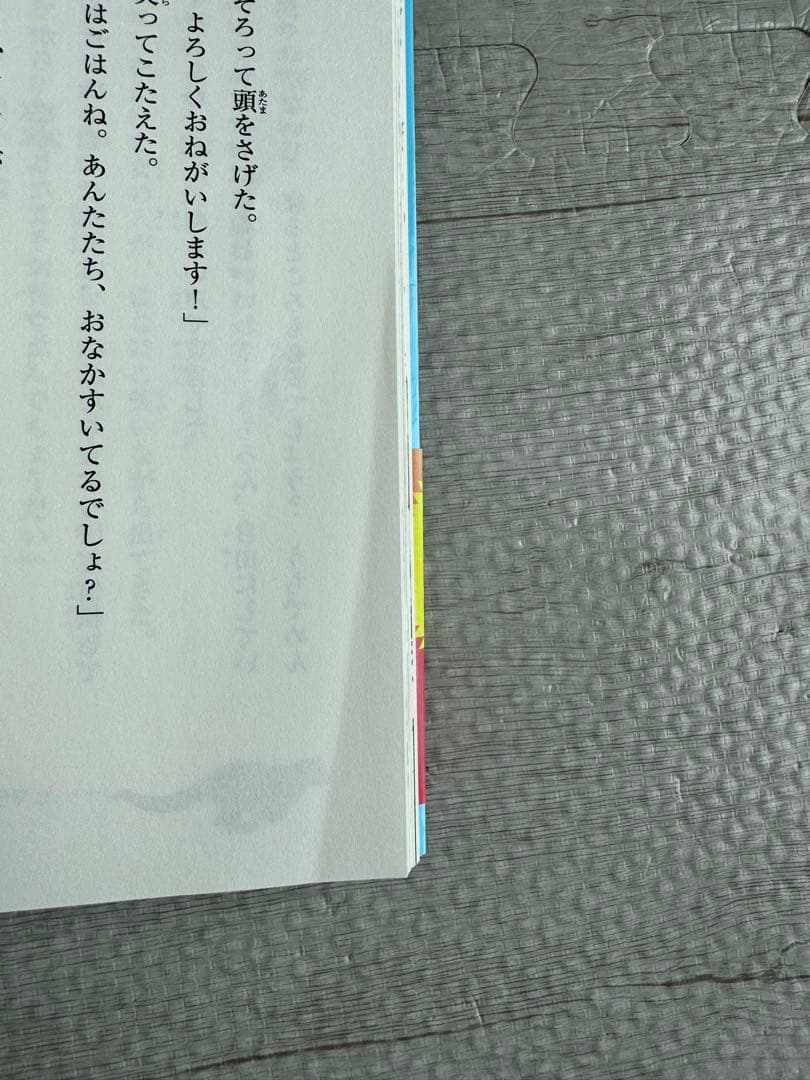 そろって頭をさげた。
よろしくおねがいします！」
笑ってこたえた。
はごはんね。あんたたち、おなかすいてるでしょ？」